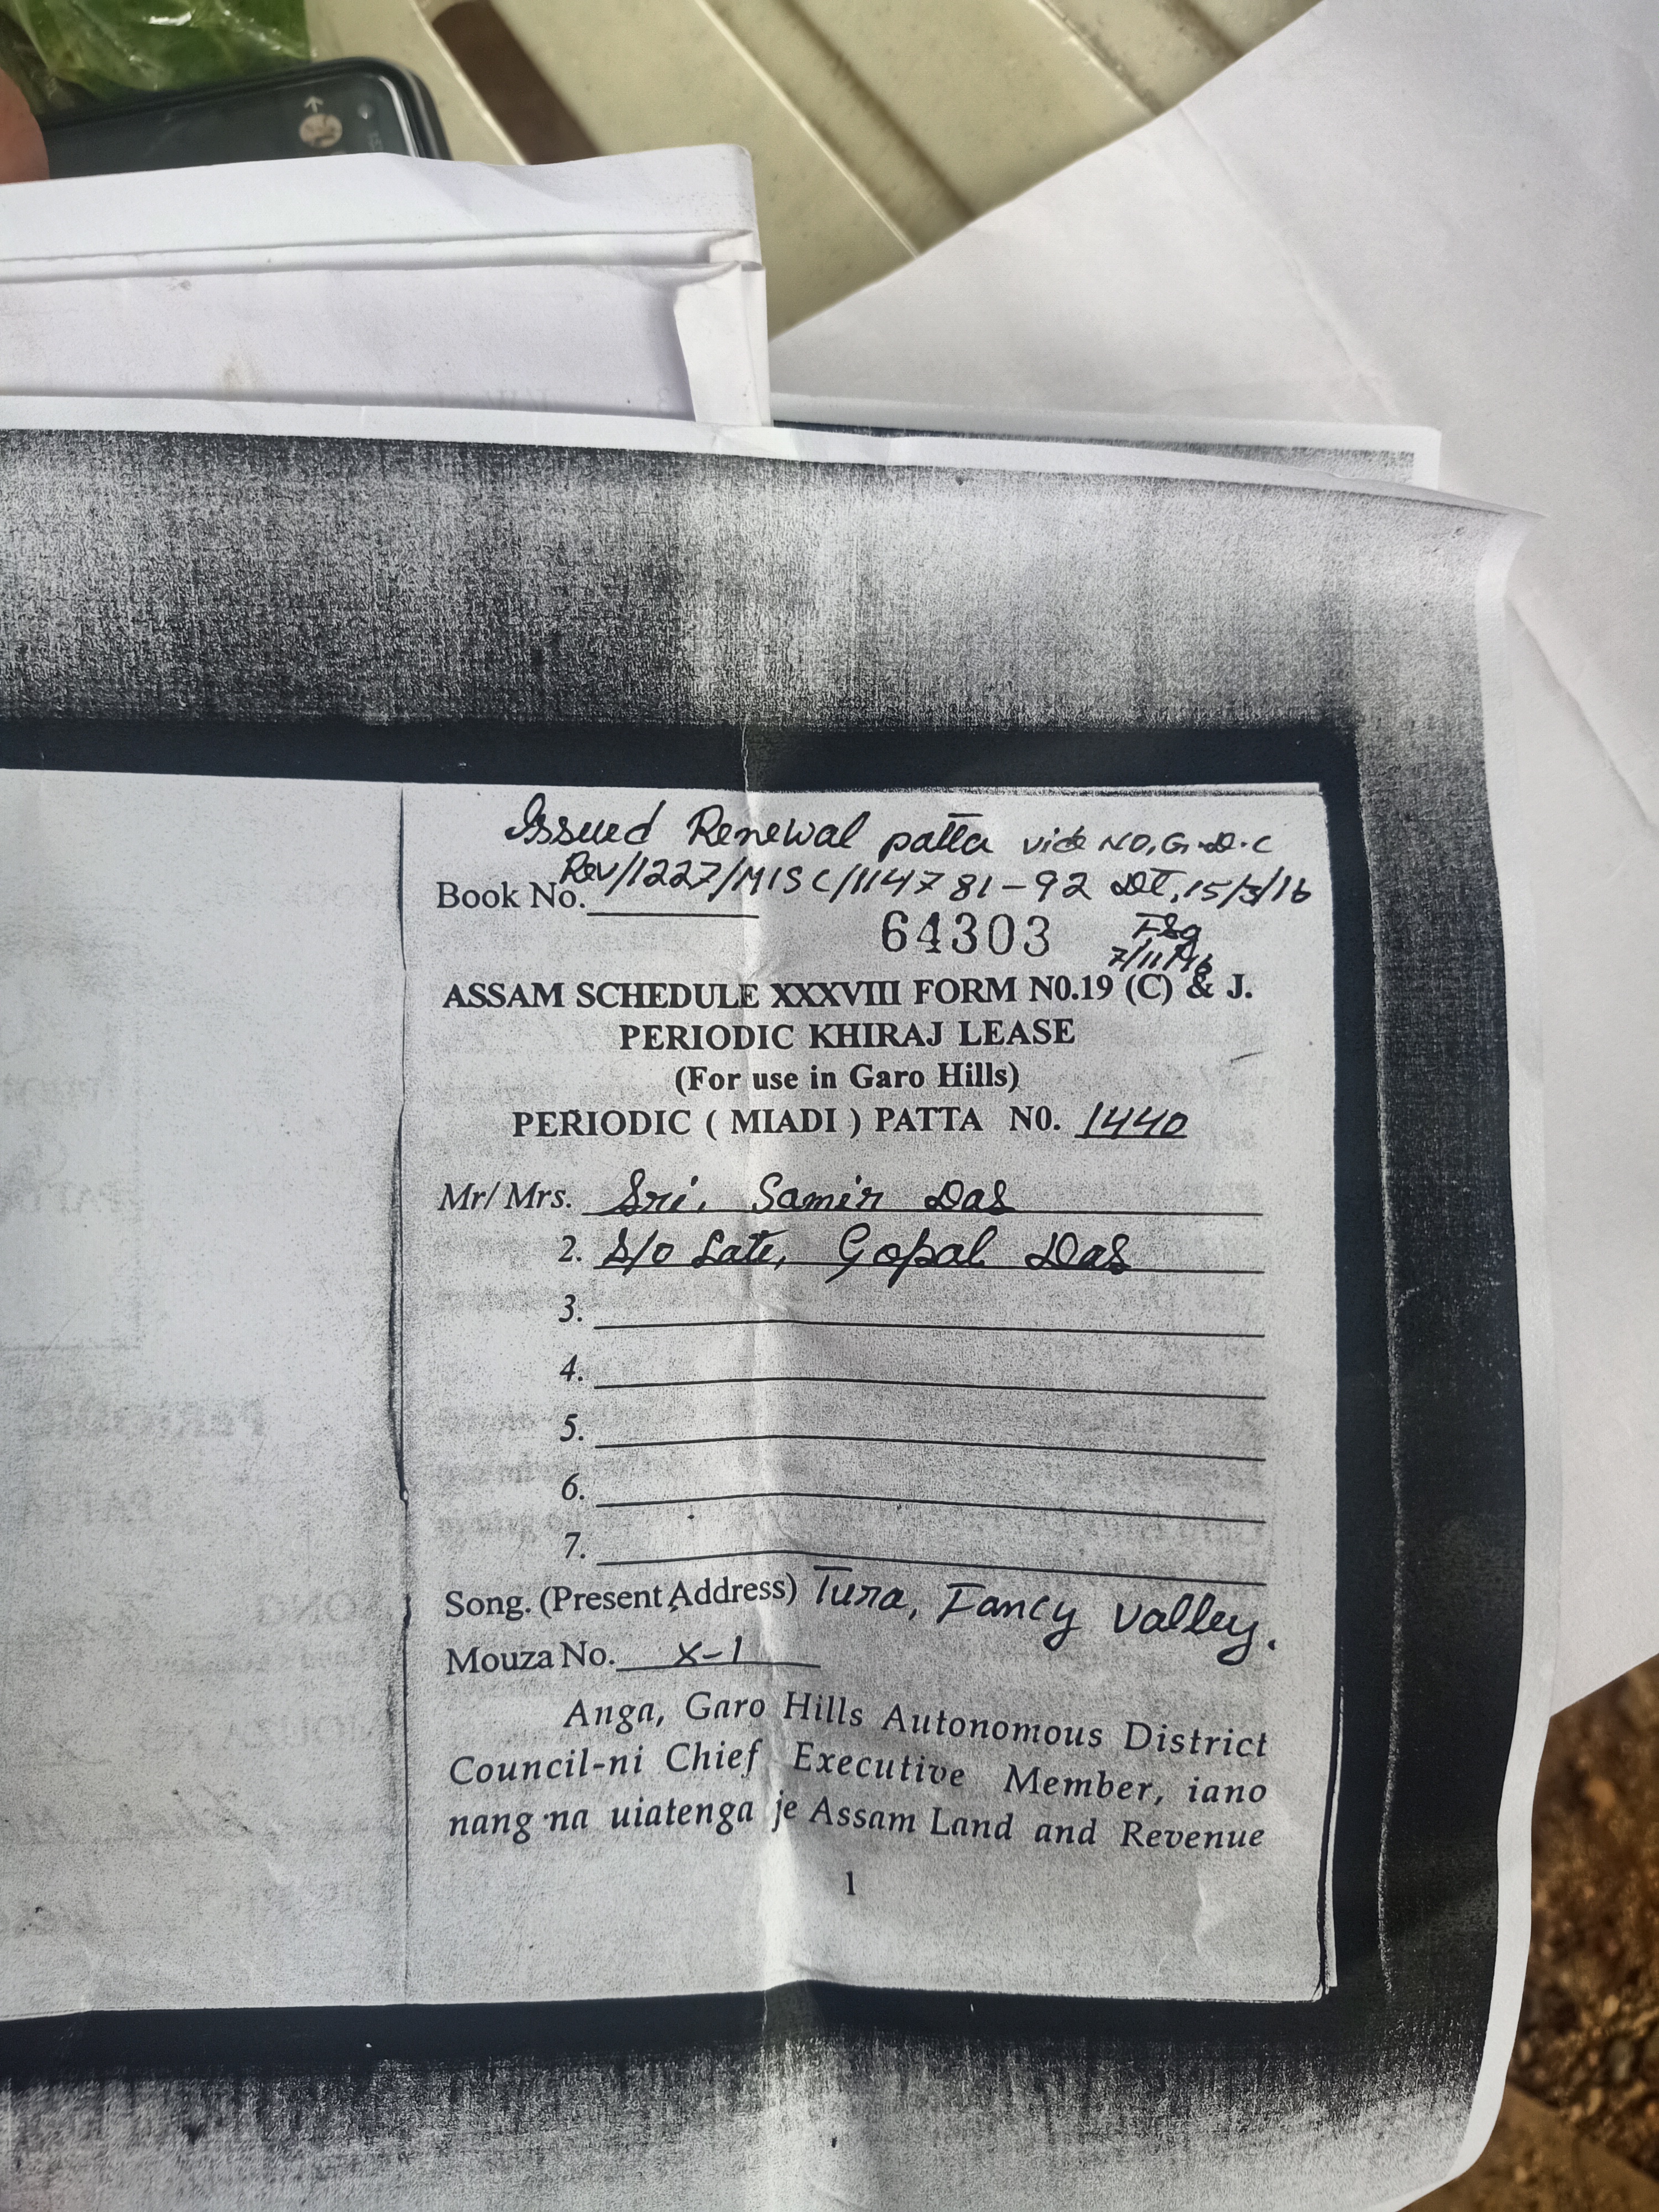 Issued Renewal patta vide NO, G.D.C
Rev/1227/MISC/114781-92 Dt, 15/3/16
Book No.
64303
7/11/16
ASSAM SCHEDULE XXXVIII FORM N0.19 (C) & J.
PERIODIC KHIRAJ LEASE
(For use in Garo Hills)
PERIODIC ( MIADI ) PATTA N0. 1440
Mr/ Mrs. Sri, Samir Das
2. S/o Late, Gopal Das
3.
4.
5.
6.
7.
Song. (Present Address) Tura, Fancy valley.
Mouza No. X-1
Anga, Garo Hills Autonomous District
Council-ni Chief Executive Member, iano
nang·na uiatenga je Assam Land and Revenue
1